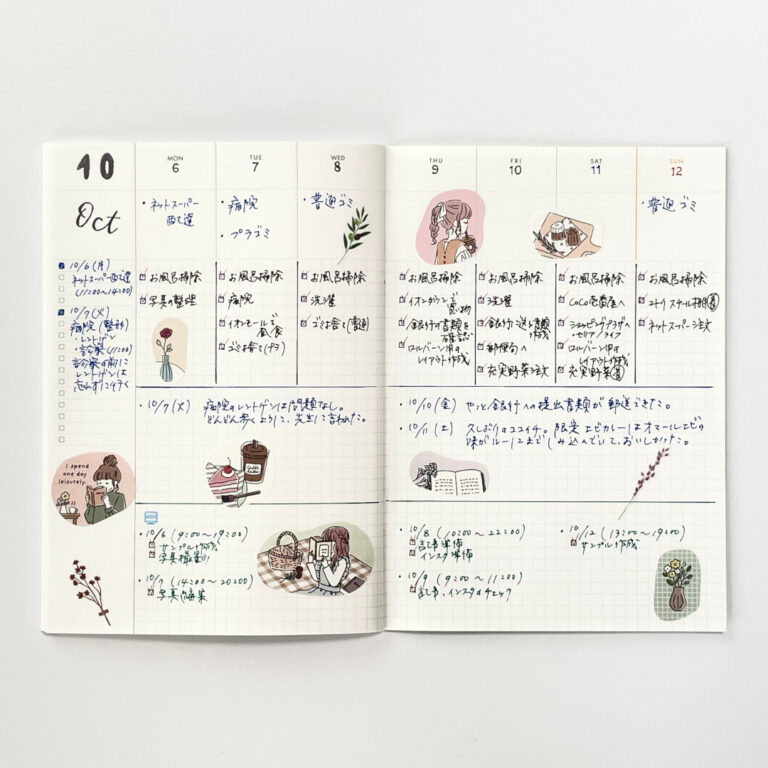 10
Oct
MON
6
TUE
7
WED
8
THU
9
FRI
10
SAT
11
SUN
12
・ネットスーパー
配達
・病院
・プラゴミ
・普通ゴミ
・普通ゴミ
10/6(月)
ネットスーパー配達
(11:00~14:00)
10/7(火)
病院(整形)
・レントゲン
・診察(11:00)
診察の前に
レントゲンは
忘れずに行く
お風呂掃除
写真の整理
お風呂掃除
病院
イオンモールで
ゴミ捨て(プラ)
お風呂掃除
洗濯
ゴミ捨て(普通)
お風呂掃除
イオンタウンで
買い物
銀行の書類を
確認
ロルバーン用の
レイアウト作成
お風呂掃除
洗濯
銀行に送る書類
作成
郵便局へ
充実野菜注文
お風呂掃除
CoCo壱番屋へ
ショッピングプラザへ
・セリア/ライフ
ロルバーン用の
レイアウト作成
充実野菜
お風呂掃除
ネットスーパー注文
・10/7(火) 病院のレントゲンは問題なし。
どんどん歩くように、先生に言われた。
・10/10(金) やっと銀行への提出書類が郵送できた。
・10/11(土) 久しぶりのココイチ。限定エビカレーはオマールエビの
味がルーにまでしみ込んでいて、おいしかった。
I spend
one day
leisurely.
・10/6(9:00~19:00)
サンプル作成
写真撮影
・10/7(14:00~20:00)
写真編集
・10/8(10:00~22:00)
記事準備
インスタ準備
・10/9(9:00~11:00)
記事、インスタのチェック
・10/12(13:00~19:00)
サンプル作成